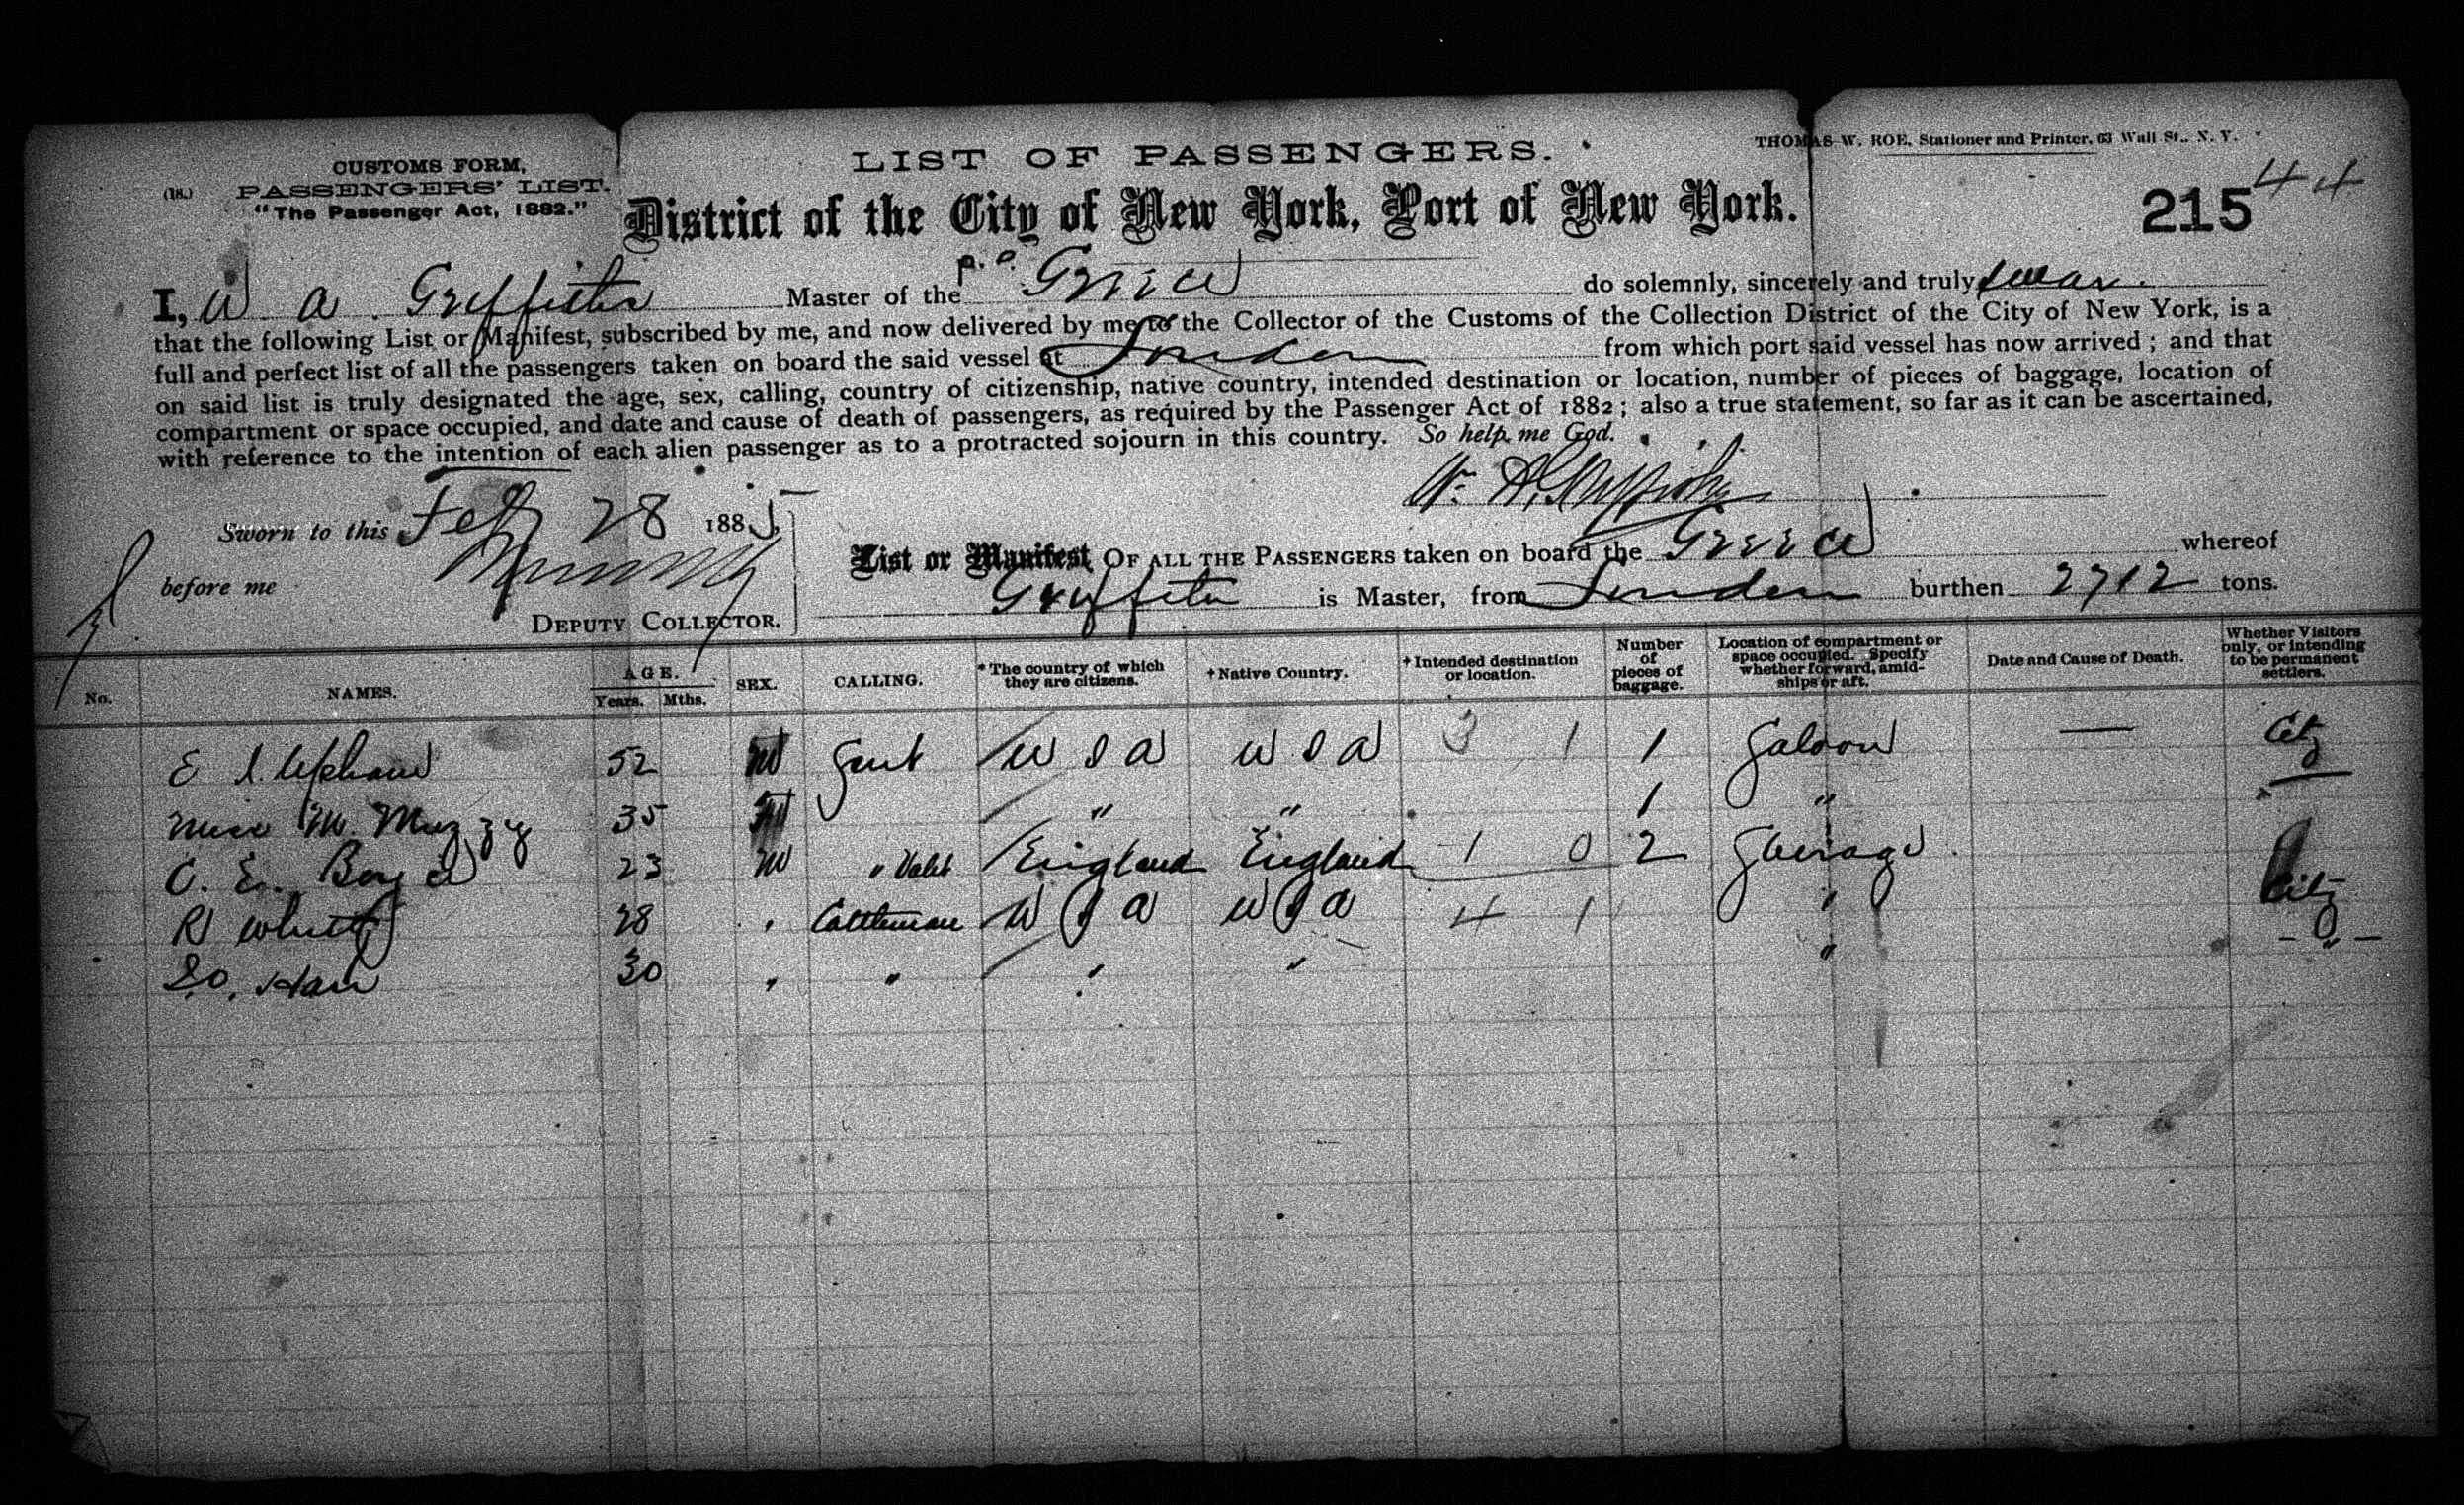 CUSTOMS FORM,
(18.) PASSENGERS' LIST.
"The Passenger Act, 1882."
LIST OF PASSENGERS.
THOMAS W. ROE, Stationer and Printer, 63 Wall St., N. Y.
District of the City of New York, Port of New York.
215 44
I, W A Griffiths Master of the Greece do solemnly, sincerely and truly swear
that the following List or Manifest, subscribed by me, and now delivered by me to the Collector of the Customs of the Collection District of the City of New York, is a
full and perfect list of all the passengers taken on board the said vessel at London from which port said vessel has now arrived; and that
on said list is truly designated the age, sex, calling, country of citizenship, native country, intended destination or location, number of pieces of baggage, location of
compartment or space occupied, and date and cause of death of passengers, as required by the Passenger Act of 1882; also a true statement, so far as it can be ascertained,
with reference to the intention of each alien passenger as to a protracted sojourn in this country. So help me God.
Sworn to this Feby 28 1885
before me
DEPUTY COLLECTOR.
List or Manifest OF ALL THE PASSENGERS taken on board the Greece whereof
Griffiths is Master, from London burthen 2712 tons.
No. NAMES. AGE. Years. Mths. SEX. CALLING. *The country of which they are citizens. †Native Country. †Intended destination or location. Number of pieces of baggage. Location of compartment or space occupied. Specify whether forward, amidships or aft. Date and Cause of Death. Whether Visitors only, or intending to be permanent settlers.
E 52 M Gent U S A U S A 3 1 1 Saloon — Citz
Miss M. Muzzy 35 " " 1 "
C. E. Boyd 23 M " Valet England England 1 0 2 Steerage
R White 28 " Cattleman U S A U S A 4 1 " Citz
30 " " " " " - " -